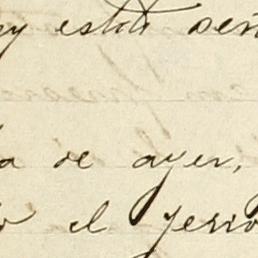 y esta señ
a de ayer,
o el ferro